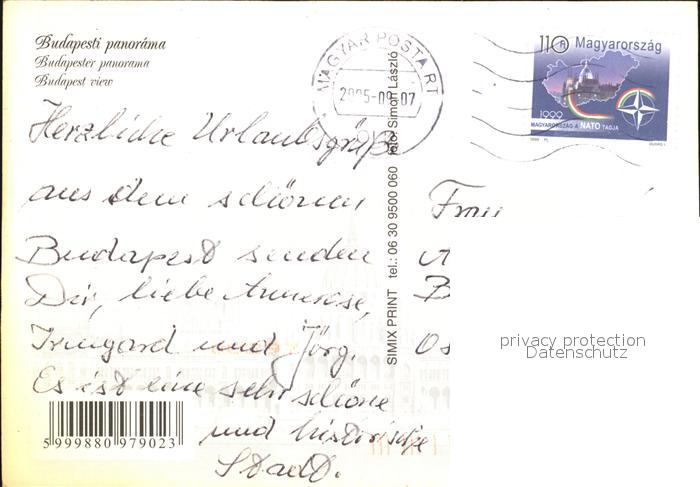 Budapesti panoráma
Budapester panorama
Budapest view
Herzliche Urlaubsgrüße
aus dem schönen
Budapest senden
Dir, liebe Annerose,
Irmgard und Jörg.
Es ist eine sehr schöne
und historische
Stadt.
5 999880 979023
SIMIX PRINT tel.: 06 30 9500 060 Fotó: Simon László
MAGYAR POSTA RT
110 Ft Magyarország
1999
MAGYARORSZÁG A NATO TAGJA
Frau
privacy protection
Datenschutz